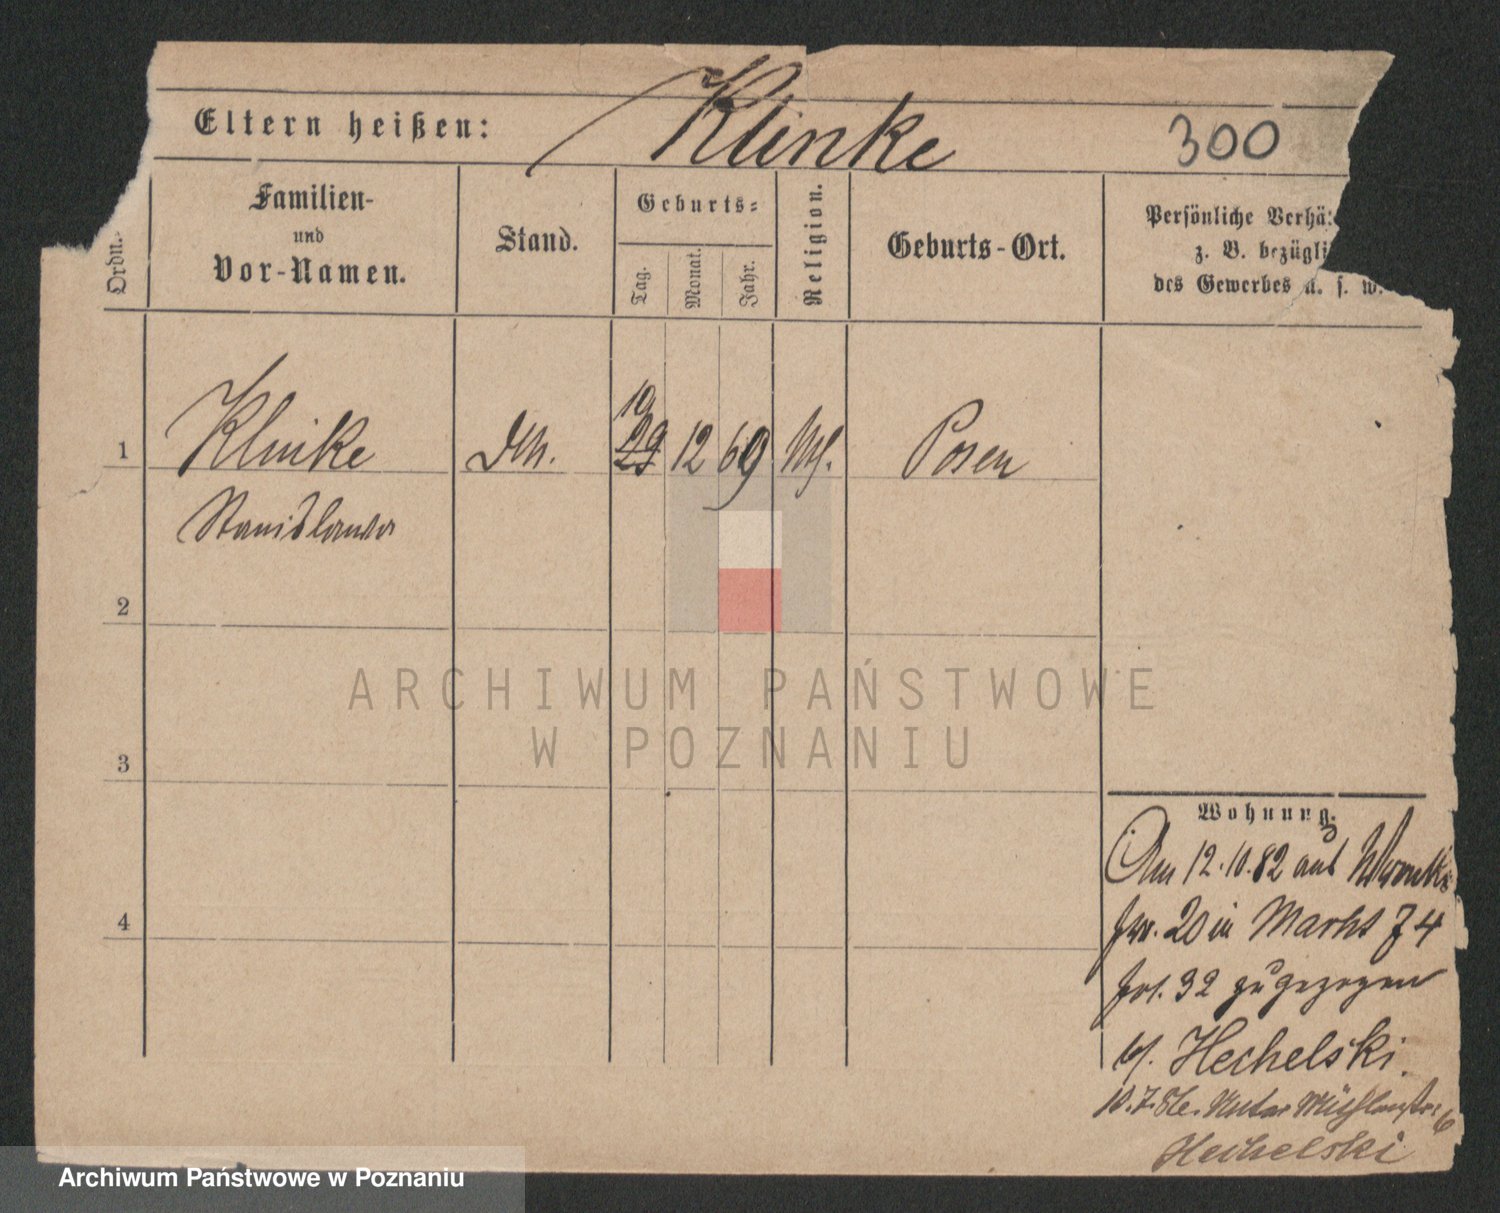 Eltern heißen: Klinke 300
Ordn.
Familien-
und
Vor-Namen.
Stand.
Geburts-
Tag.
Monat.
Jahr.
Religion.
Geburts-Ort.
Persönliche Verhä
z. B. bezügli
des Gewerbes u. s. w.
1 Klinke 19 29 12 69 Posen
Stanislawa
2
3
4
ARCHIWUM PAŃSTWOWE
W POZNANIU
Wohnung.
Am 12.10.82 aus Wronki
20 in Markt 74
32 zugezogen
bf. Hechelski.
10.7. Unter Mühlenstr. 6
Hechelski
Archiwum Państwowe w Poznaniu